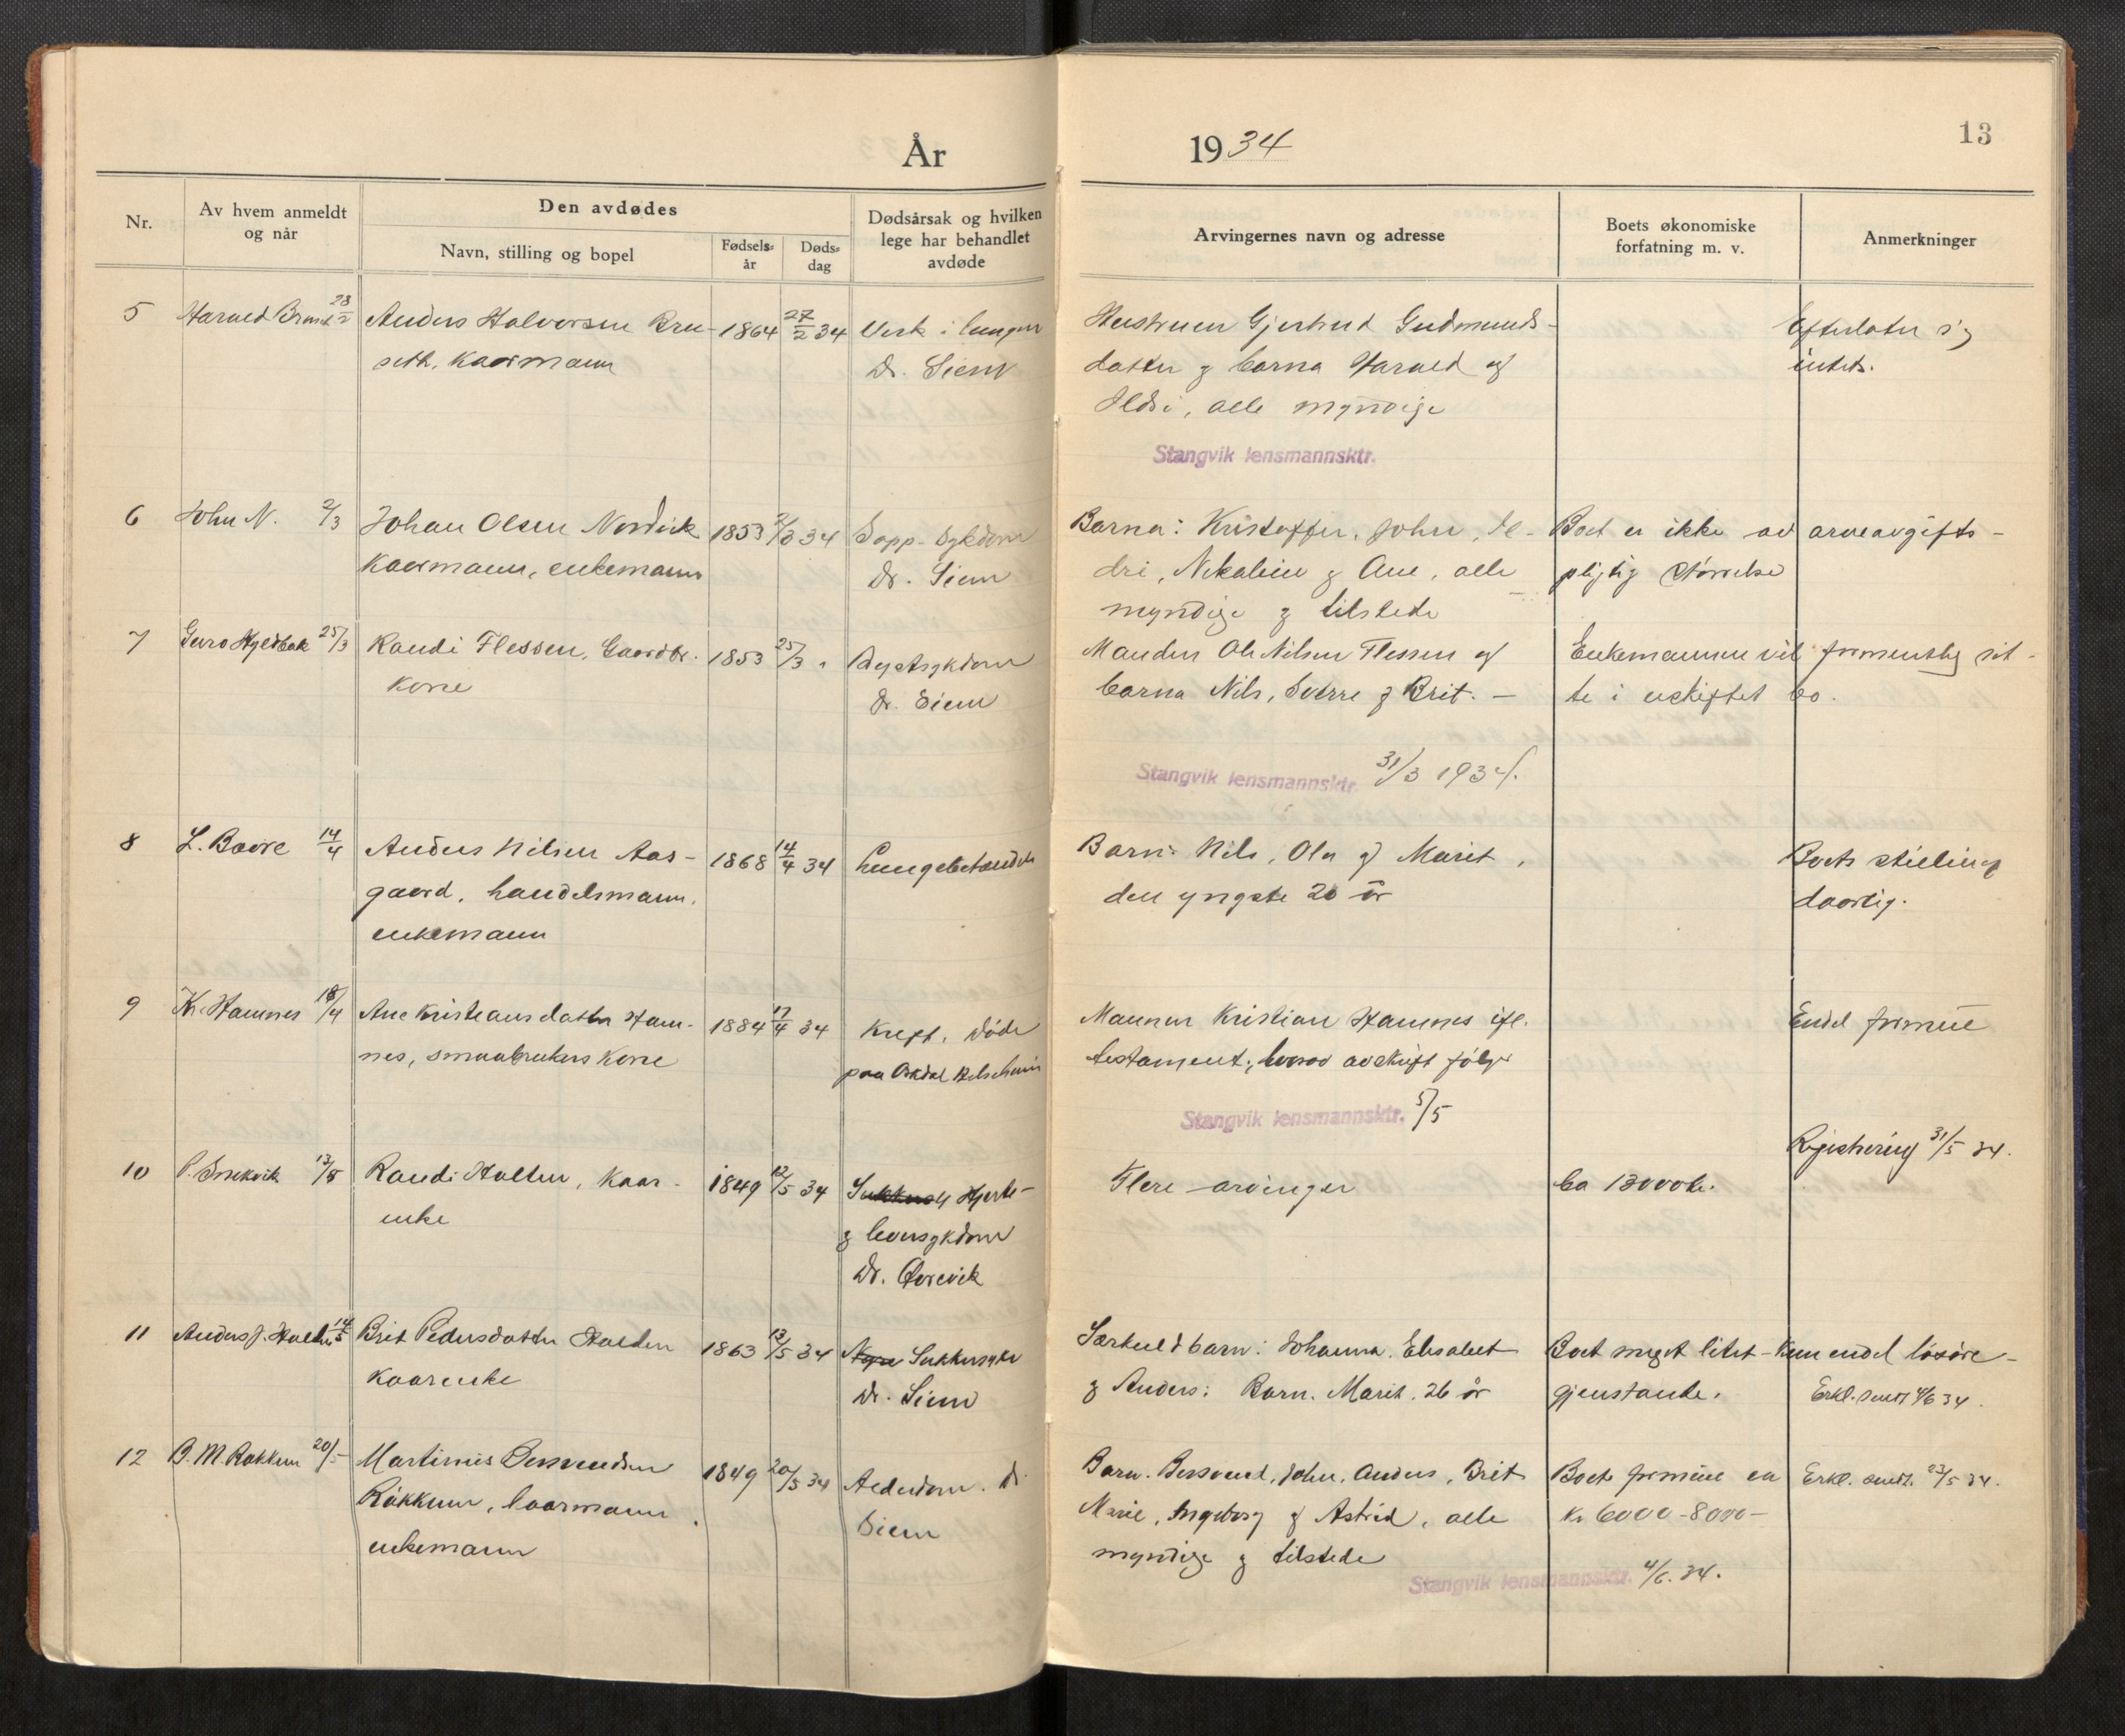 År 1934
13
Nr.
Av hvem anmeldt
og når
Den avdødes
Navn, stilling og bopel
Fødsels-
år
Døds-
dag
Dødsårsak og hvilken
lege har behandlet
avdøde
Arvingernes navn og adresse
Boets økonomiske
forfatning m. v.
Anmerkninger
5 Harald 28/2 Anders Halvorsen Bru- 1864 27/2 34 Verk i lungen Hustruen Gjertrud Gudmunds- Efterlater sig
seth, kaarmann Dr. Siem datter og barna Harald og intet.
Ildri, alle myndige
Stangvik lensmannsktr.
6 John N. 2/3 Johan Olsen Nordvik 1853 2/3 34 Dr. Siem Barna: Kristoffer, John, Il- Boet er ikke av arveavgifts-
kaarmann, enkemann dri, Nikoline og Ane, alle pligtig størrelse
myndige og tilstede
7 Guro Hyldbak 25/3 Randi Flessen, Gaardbr. 1853 25/3 " Brystsykdom Manden Ole Nilsen Flessen og Enkemannen vil formentlig sit-
kone Dr. Siem barna Nils, Sverre og Brit. - te i uskiftet bo.
Stangvik lensmannsktr. 31/3 1934.
8 L. Bovre 14/4 Anders Nilsen Aas- 1868 14/4 34 Lungebetændelse Barn: Nils, Ola og Marit, Boets stilling
gaard, handelsmann, den yngste 20 år daarlig.
enkemann
9 Kr. Hamnes 18/4 Ane Kristiansdatter Ham- 1884 17/4 34 Kreft. Døde Mannen Kristian Hamnes ifl. Endel formue
nes, smaabrukers kone paa Orkdal testament, hvorav avskrift følger
Stangvik lensmannsktr. 5/5
10 P. 13/5 Randi Halten, kaar- 1849 12/5 34 Hjerte- Flere arvinger ca 13000 kr. Registrering 31/5 34.
enke og leversykdom
Dr.
11 Anders J. 14/5 Brit Pedersdatter Halden 1863 13/5 34 Sukkersyke Særkuldbarn: Johanna, Elisabet Boet meget litet - Kun endel løsøre-
kaarenke Dr. Siem og Anders: Barn. Marit. 26 år gjenstande. Erkl. sendt 4/6 34.
12 B. M. Røkkum 20/5 Martinus Bersvendsen 1849 20/5 34 Alderdom. Dr. Barn. Bersvend, John, Anders, Brit Boets formue ca Erkl. sendt. 23/5 34.
Røkkum, kaarmann Siem Marie, Ingeborg og Astrid, alle kr 6000-8000-
enkemann myndige og tilstede
Stangvik lensmannsktr. 4/6. 34.